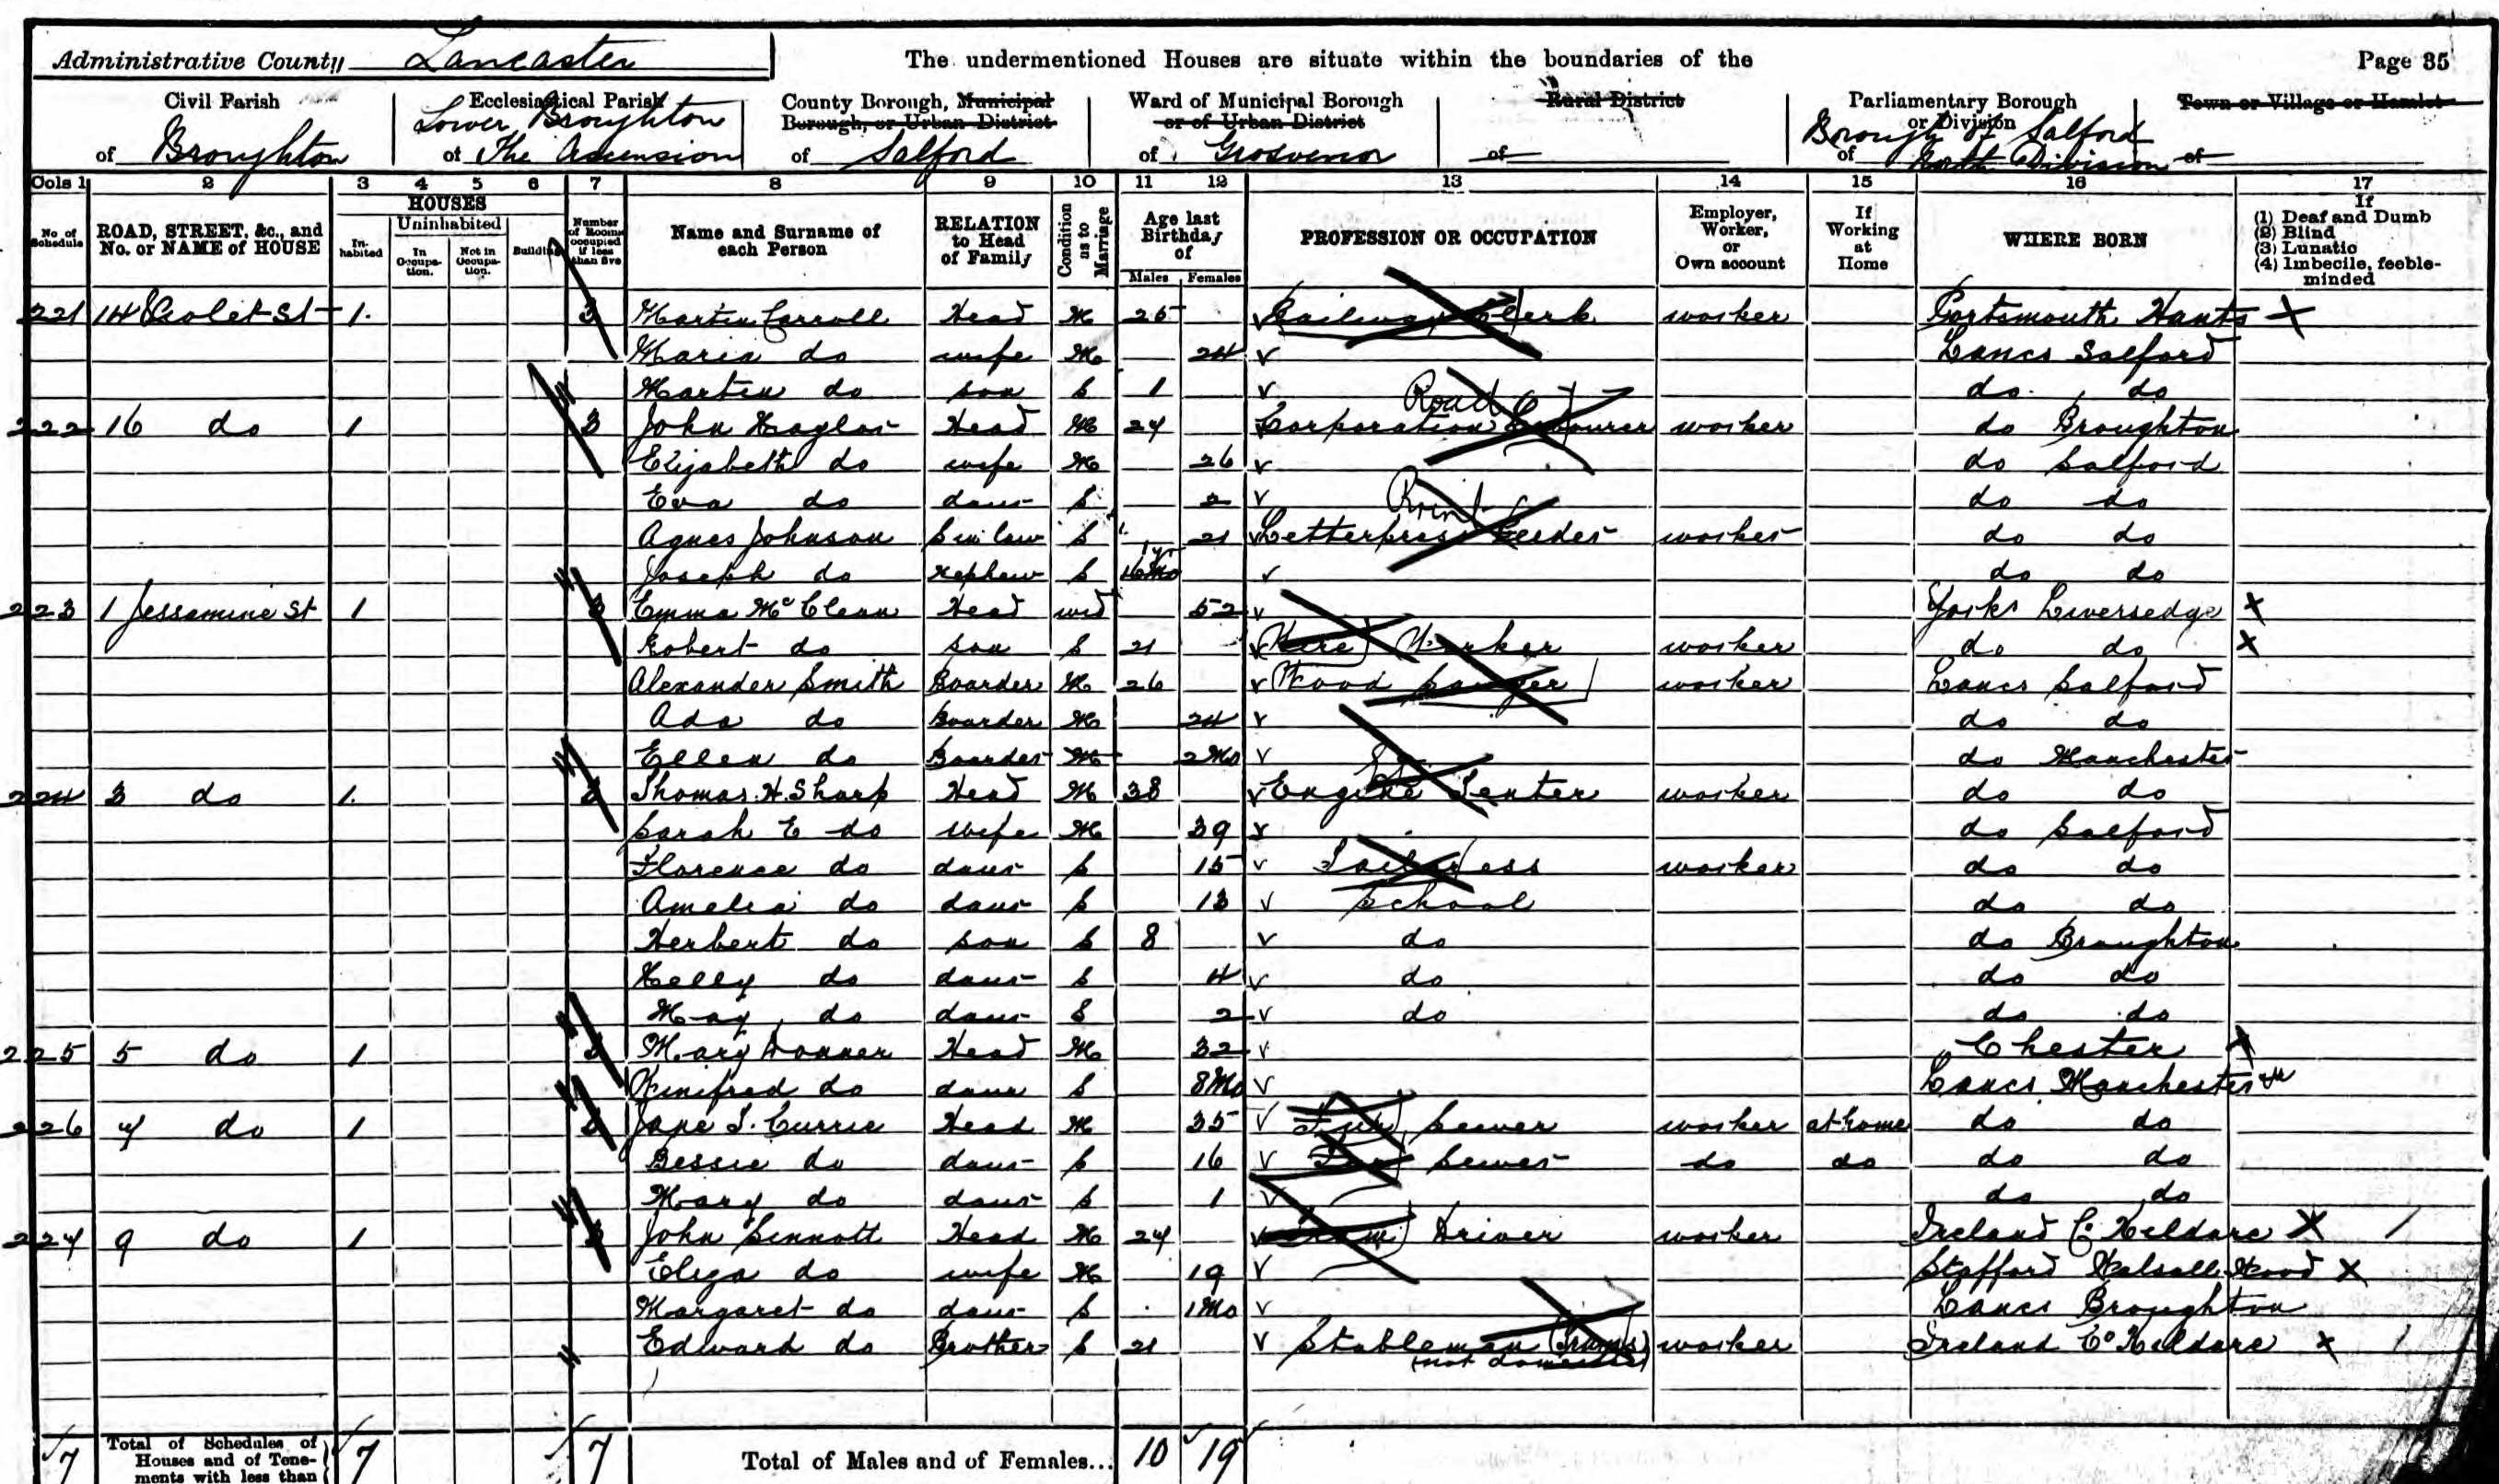 Administrative County Lancaster The undermentioned Houses are situate within the boundaries of the Page 35
Civil Parish of Broughton
Ecclesiastical Parish of Lower Broughton The Ascension
County Borough, Municipal Borough, or Urban District of Salford
Ward of Municipal Borough or of Urban District of Grosvenor
Rural District of
Parliamentary Borough or Division of Borough of Salford North Division
Town or Village or Hamlet of
Cols 1 2 3 4 5 6 7 8 9 10 11 12 13 14 15 16 17
No. of Schedule
ROAD, STREET, &c., and No. or NAME of HOUSE
HOUSES
Inhabited
Uninhabited
In Occupation.
Not in Occupation.
Building
Number of Rooms occupied if less than five
Name and Surname of each Person
RELATION to Head of Family
Condition as to Marriage
Age last Birthday of
Males Females
PROFESSION OR OCCUPATION
Employer, Worker, or Own account
If Working at Home
WHERE BORN
If
(1) Deaf and Dumb
(2) Blind
(3) Lunatic
(4) Imbecile, feeble-minded
221 14 Violet St 1 3 Martin Carroll Head M 25 Railway Clerk worker Portsmouth Hants
Maria do wife M 24 Lancs Salford
Martin do son S 1 do do
222 16 do 1 3 John Naylor Head M 27 Corporation Road Labourer worker do Broughton
Elizabeth do wife M 26 do Salford
Eva do daur S 2 do do
Agnes Johnson S in law S 21 Letterpress Print Feeder worker do do
Joseph do nephew S 1 yr do do
223 1 Jessamine St 1 3 Emma McClean Head wid 52 Yorks Liversedge
Robert do son S 21 Wire Worker worker do do
Alexander Smith Boarder M 26 Wood Sawyer worker Lancs Salford
Ada do Boarder M 24 do do
Ellen do Boarder 2 Mo do Manchester
224 3 do 1 Thomas H. Sharp Head M 38 Engine worker do do
Sarah E do wife M 39 do Salford
Florence do daur S 15 Tailoress worker do do
Amelia do daur S 13 School do do
Herbert do son S 8 do do Broughton
Nelly do daur S 4 do do do
May do daur S 2 do do do
225 5 do 1 Mary Head M 32 Chester
Winifred do daur S 8 Mo Lancs Manchester
226 7 do 1 Jane T. Currie Head M 35 Fur Sewer worker at home do do
Bessie do daur S 16 Fur Sewer do do do do
Mary do daur S 1 do do
227 9 do 1 John Sinnott Head M 27 Tram Driver worker Ireland Co Kildare
Eliza do wife M 19 Stafford Walsall Wood
Margaret do daur S 1 Mo Lancs Broughton
Edward do Brother S 21 Stableman (Trams) (not domestic) worker Ireland Co Kildare
7 Total of Schedules of Houses and of Tenements with less than 7 7 Total of Males and of Females... 10 19